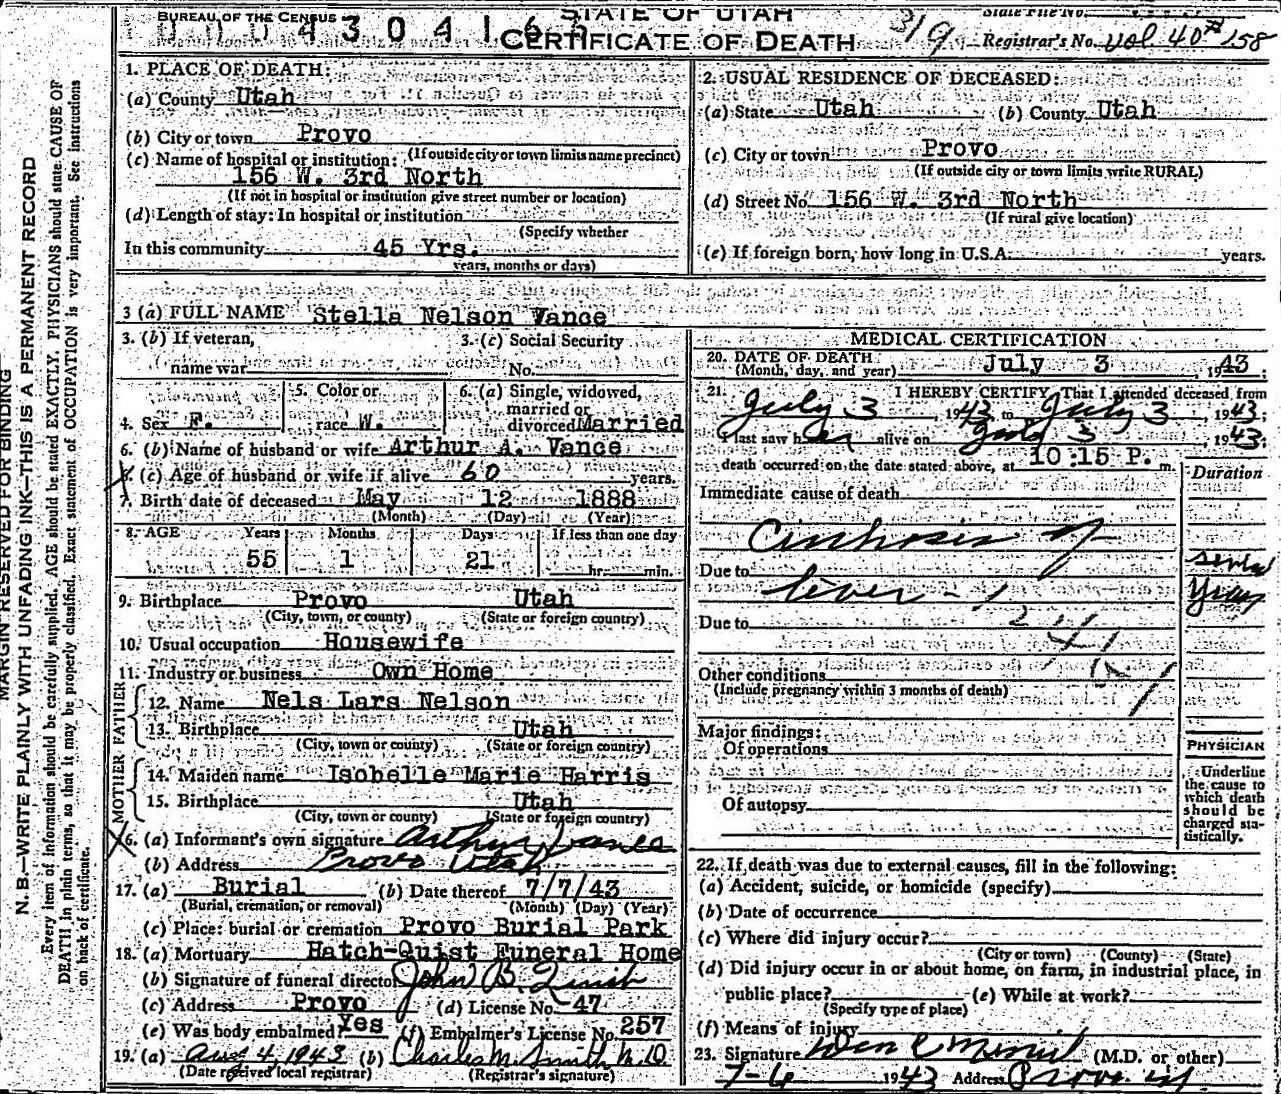 BUREAU OF THE CENSUS
STATE OF UTAH
CERTIFICATE OF DEATH
319
State File No.
Registrar's No. Vol 40 # 158
MARGIN RESERVED FOR BINDING
N. B.—WRITE PLAINLY WITH UNFADING INK—THIS IS A PERMANENT RECORD
Every item of information should be carefully supplied. AGE should be stated EXACTLY. PHYSICIANS should state CAUSE OF
DEATH in plain terms, so that it may be properly classified. Exact statement of OCCUPATION is very important. See instructions
on back of certificate.
1. PLACE OF DEATH:
(a) County Utah
(b) City or town Provo
(If outside city or town limits name precinct)
(c) Name of hospital or institution:
156 W. 3rd North
(If not in hospital or institution give street number or location)
(d) Length of stay: In hospital or institution
(Specify whether
In this community 45 Yrs.
years, months or days)
2. USUAL RESIDENCE OF DECEASED:
(a) State Utah (b) County Utah
(c) City or town Provo
(If outside city or town limits write RURAL)
(d) Street No. 156 W. 3rd North
(If rural give location)
(e) If foreign born, how long in U.S.A. years.
3 (a) FULL NAME Stella Nelson Vance
3. (b) If veteran,
name war
3. (c) Social Security
No.
4. Sex F.
5. Color or
race W.
6. (a) Single, widowed,
married or
divorced Married
6. (b) Name of husband or wife Arthur A. Vance
(c) Age of husband or wife if alive 60 years.
7. Birth date of deceased May 12 1888
(Month) (Day) (Year)
8. AGE Years Months Days If less than one day
55 1 21 hr. min.
9. Birthplace Provo Utah
(City, town, or county) (State or foreign country)
10. Usual occupation Housewife
11. Industry or business Own Home
FATHER
12. Name Nels Lars Nelson
13. Birthplace Utah
(City, town or county) (State or foreign country)
MOTHER
14. Maiden name Isobelle Marie Harris
15. Birthplace Utah
(City, town or county) (State or foreign country)
16. (a) Informant's own signature Arthur Vance
(b) Address Provo Utah
17. (a) Burial (b) Date thereof 7/7/43
(Burial, cremation, or removal) (Month) (Day) (Year)
(c) Place: burial or cremation Provo Burial Park
18. (a) Mortuary Hatch-Quist Funeral Home
(b) Signature of funeral director John B. Quist
(c) Address Provo (d) License No. 47
(e) Was body embalmed? Yes (f) Embalmer's License No. 257
19. (a) Aug 4, 1943 (b) Charles M. Smith M.D
(Date received local registrar) (Registrar's signature)
MEDICAL CERTIFICATION
20. DATE OF DEATH July 3, 1943;
(Month, day, and year)
21. I HEREBY CERTIFY, That I attended deceased from
July 3 1943 to July 3, 1943;
I last saw her alive on July 3, 1943;
death occurred on the date stated above, at 10:15 P. m.
Duration
Immediate cause of death
Cirrhosis of
Due to
liver
several
years
Due to
Other conditions
(Include pregnancy within 3 months of death)
Major findings:
Of operations
Of autopsy
PHYSICIAN
Underline
the cause to
which death
should be
charged sta-
tistically.
22. If death was due to external causes, fill in the following:
(a) Accident, suicide, or homicide (specify)
(b) Date of occurrence
(c) Where did injury occur?
(City or town) (County) (State)
(d) Did injury occur in or about home, on farm, in industrial place, in
public place? (e) While at work?
(Specify type of place)
(f) Means of injury
23. Signature (M.D. or other)
7-6 1943 Address Provo. Ut